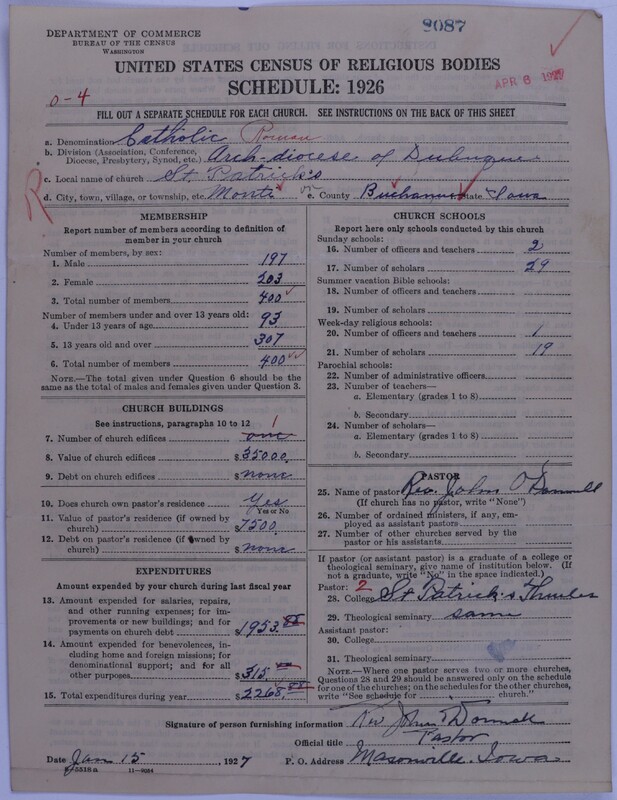 9087
DEPARTMENT OF COMMERCE
BUREAU OF THE CENSUS
WASHINGTON
UNITED STATES CENSUS OF RELIGIOUS BODIES
SCHEDULE: 1926
APR 8 1927
0-4
FILL OUT A SEPARATE SCHEDULE FOR EACH CHURCH. SEE INSTRUCTIONS ON THE BACK OF THIS SHEET
a. Denomination Catholic Roman
b. Division (Association, Conference, Diocese, Presbytery, Synod, etc.) Arch-diocese of Dubuque
c. Local name of church St Patrick's
d. City, town, village, or township, etc. Monti or e. County Buchanan State Iowa
R
MEMBERSHIP
Report number of members according to definition of member in your church
Number of members, by sex:
1. Male 197
2. Female 203
3. Total number of members 400
Number of members under and over 13 years old:
4. Under 13 years of age 93
5. 13 years old and over 307
6. Total number of members 400
NOTE.—The total given under Question 6 should be the same as the total of males and females given under Question 3.
CHURCH BUILDINGS
See instructions, paragraphs 10 to 12
7. Number of church edifices one 1
8. Value of church edifices $35000.
9. Debt on church edifices $none
10. Does church own pastor's residence Yes
Yes or No
11. Value of pastor's residence (if owned by church) $7500.
12. Debt on pastor's residence (if owned by church) $none
EXPENDITURES
Amount expended by your church during last fiscal year
13. Amount expended for salaries, repairs, and other running expenses; for improvements or new buildings; and for payments on church debt $1953.88
14. Amount expended for benevolences, including home and foreign missions; for denominational support; and for all other purposes $315
15. Total expenditures during year $2268.88
CHURCH SCHOOLS
Report here only schools conducted by this church
Sunday schools:
16. Number of officers and teachers 2
17. Number of scholars 29
Summer vacation Bible schools:
18. Number of officers and teachers
19. Number of scholars
Week-day religious schools:
20. Number of officers and teachers 1
21. Number of scholars 19
Parochial schools:
22. Number of administrative officers
23. Number of teachers—
a. Elementary (grades 1 to 8)
b. Secondary
24. Number of scholars—
a. Elementary (grades 1 to 8)
b. Secondary
PASTOR
25. Name of pastor Rev. John O'Donnell
(If church has no pastor, write "None")
26. Number of ordained ministers, if any, employed as assistant pastors
27. Number of other churches served by the pastor or his assistants
If pastor (or assistant pastor) is a graduate of a college or theological seminary, give name of institution below. (If not a graduate, write "No" in the space indicated.)
Pastor: 2
28. College St Patrick's Thurles
29. Theological seminary same
Assistant pastor:
30. College
31. Theological seminary
NOTE.—Where one pastor serves two or more churches, Questions 28 and 29 should be answered only on the schedule for one of the churches; on the schedules for the other churches, write "See schedule for church."
Signature of person furnishing information Rev John O'Donnell
Official title Pastor
Date Jan 15, 1927 P. O. Address Masonville, Iowa
5518a 11-9084